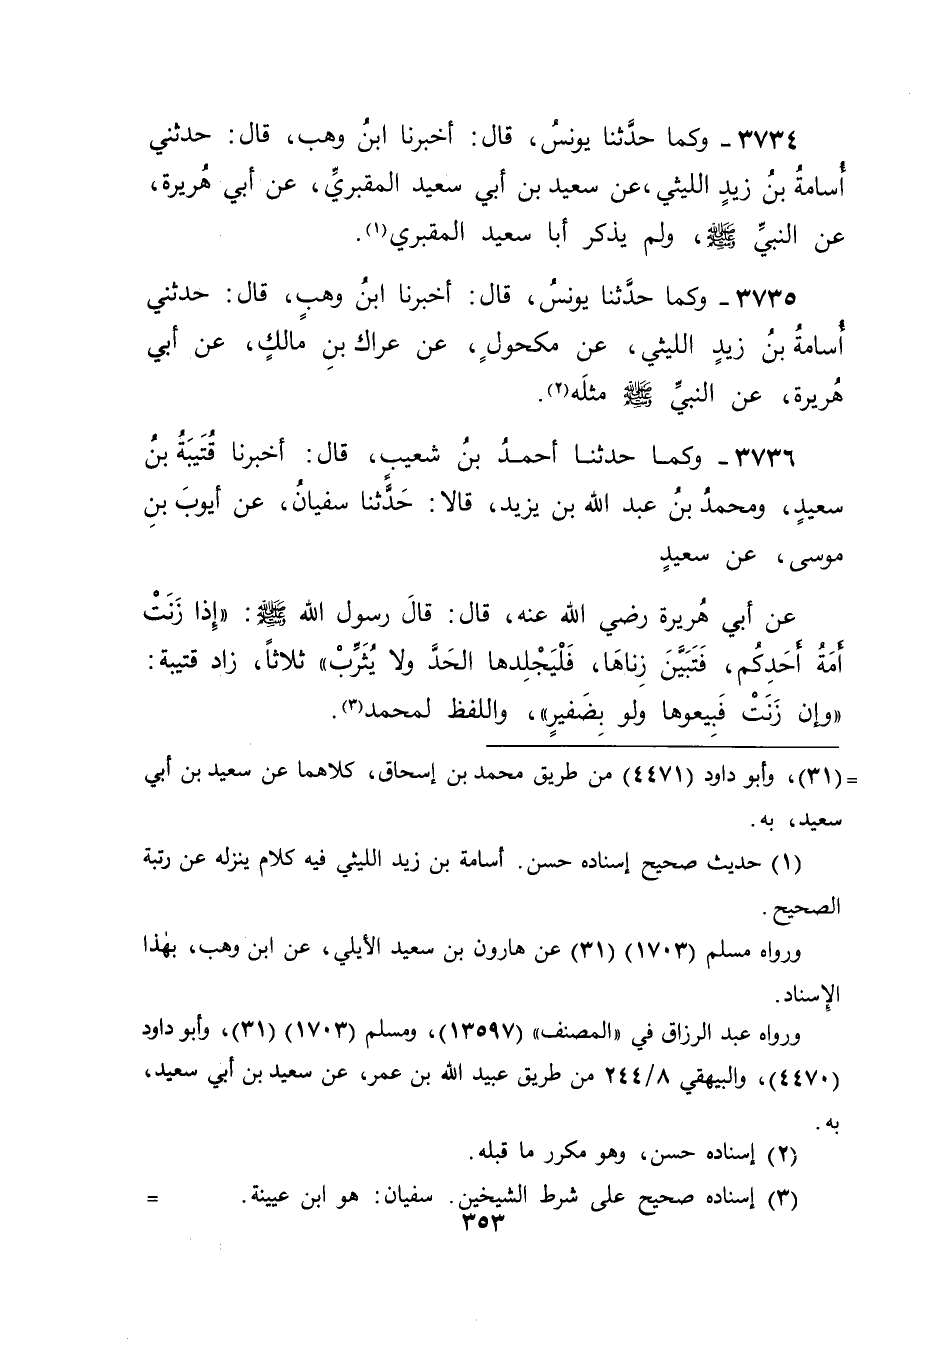 ٣٧٣٤ - وكما حدَّثنا يونسُ، قال: أخبرنا ابنُ وهب، قال: حدثني
أُسامةُ بنُ زيدٍ الليثي،عن سعيد بن أبي سعيد المقبريِّ، عن أبي هُريرة،
عن النبيِّ ﷺ، ولم يذكر أبا سعيد المقبري(١).
٣٧٣٥ - وكما حدَّثنا يونسُ، قال: أخبرنا ابنُ وهبٍ، قال: حدثني
أُسامةُ بنُ زيدٍ الليثي، عن مكحولٍ، عن عراك بنِ مالكٍ، عن أبي
هُريرة، عن النبيِّ ﷺ مثلَه(٢).
٣٧٣٦ - وكما حدثنا أحمدُ بنُ شعيبٍ، قال: أخبرنا قُتَيبَةُ بنُ
سعيدٍ، ومحمدُ بنُ عبد الله بن يزيد، قالا: حَدَّثنا سفيانُ، عن أيوبَ بنِ
موسى، عن سعيدٍ
عن أبي هُريرة رضي الله عنه، قال: قالَ رسول الله ﷺ: «إِذا زَنَتْ
أَمَةُ أَحَدِكُم، فَتَبَيَّنَ زِناهَا، فَلْيَجْلِدها الحَدَّ ولا يُثَرِّبْ» ثلاثاً، زاد قتيبة:
«وإن زَنَتْ فَبِيعوها ولو بِضَفيرٍ»، واللفظ لمحمد(٣).
= (٣١)، وأبو داود (٤٤٧١) من طريق محمد بن إسحاق، كلاهما عن سعيد بن أبي
سعيد، به.
(١) حديث صحيح إسناده حسن. أسامة بن زيد الليثي فيه كلام ينزله عن رتبة
الصحيح.
ورواه مسلم (١٧٠٣) (٣١) عن هارون بن سعيد الأيلي، عن ابن وهب، بهٰذا
الإِسناد.
ورواه عبد الرزاق في «المصنف» (١٣٥٩٧)، ومسلم (١٧٠٣) (٣١)، وأبو داود
(٤٤٧٠)، والبيهقي ٢٤٤/٨ من طريق عبيد الله بن عمر، عن سعيد بن أبي سعيد،
به.
(٢) إسناده حسن، وهو مكرر ما قبله.
(٣) إسناده صحيح على شرط الشيخين. سفيان: هو ابن عيينة. =
٣٥٣